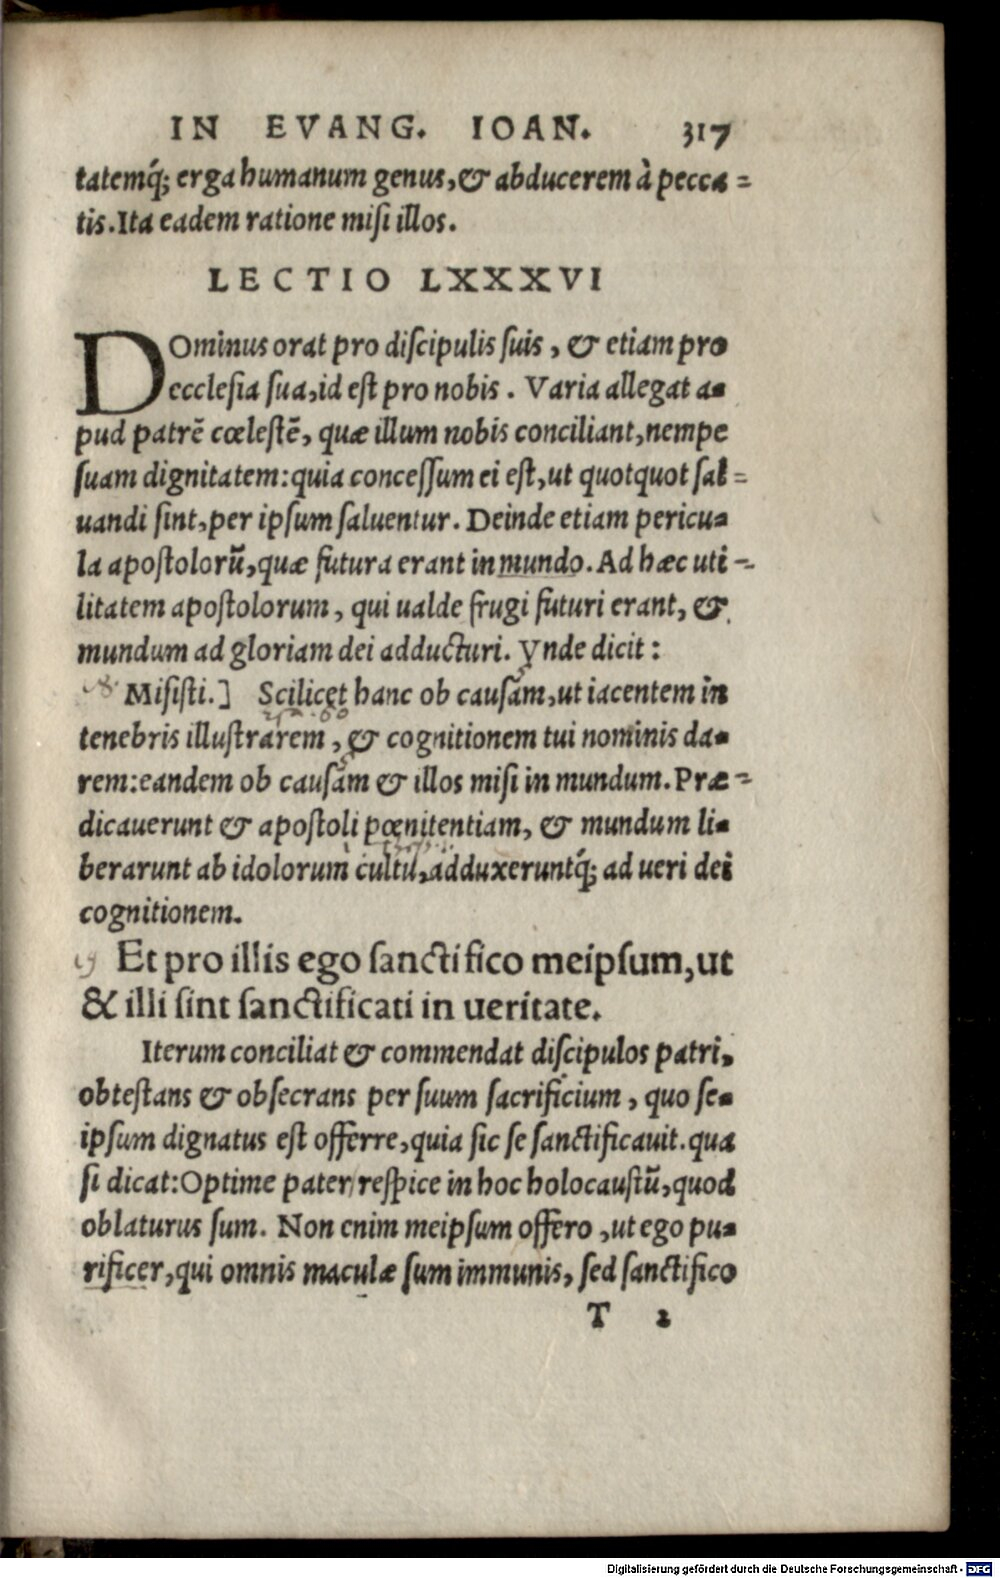 IN EVANG. IOAN. 317
tatemq́; erga humanum genus, & abducerem à pecca=
tis. Ita eadem ratione misi illos.
LECTIO LXXXVI
DOminus orat pro discipulis suis, & etiam pro
ecclesia sua, id est pro nobis. Varia allegat a=
pud patrē cœlestē, quæ illum nobis conciliant, nempe
suam dignitatem: quia concessum ei est, ut quotquot sal=
uandi sint, per ipsum saluentur. Deinde etiam pericu=
la apostolorū, quæ futura erant in mundo. Ad hæc uti=
litatem apostolorum, qui ualde frugi futuri erant, &
mundum ad gloriam dei adducturi. Vnde dicit:
Misisti.] Scilicet hanc ob causam, ut iacentem in
tenebris illustrarem, & cognitionem tui nominis da=
rem: eandem ob causam & illos misi in mundum. Præ=
dicauerunt & apostoli pœnitentiam, & mundum li=
berarunt ab idolorum cultu, adduxeruntq́; ad ueri dei
cognitionem.
19 Et pro illis ego sanctifico meipsum, ut
& illi sint sanctificati in ueritate.
Iterum conciliat & commendat discipulos patri,
obtestans & obsecrans per suum sacrificium, quo se=
ipsum dignatus est offerre, quia sic se sanctificauit. qua
si dicat: Optime pater respice in hoc holocaustū, quod
oblaturus sum. Non enim meipsum offero, ut ego pu=
rificer, qui omnis maculæ sum immunis, sed sanctifico
T 2
Digitalisierung gefördert durch die Deutsche Forschungsgemeinschaft - DFG